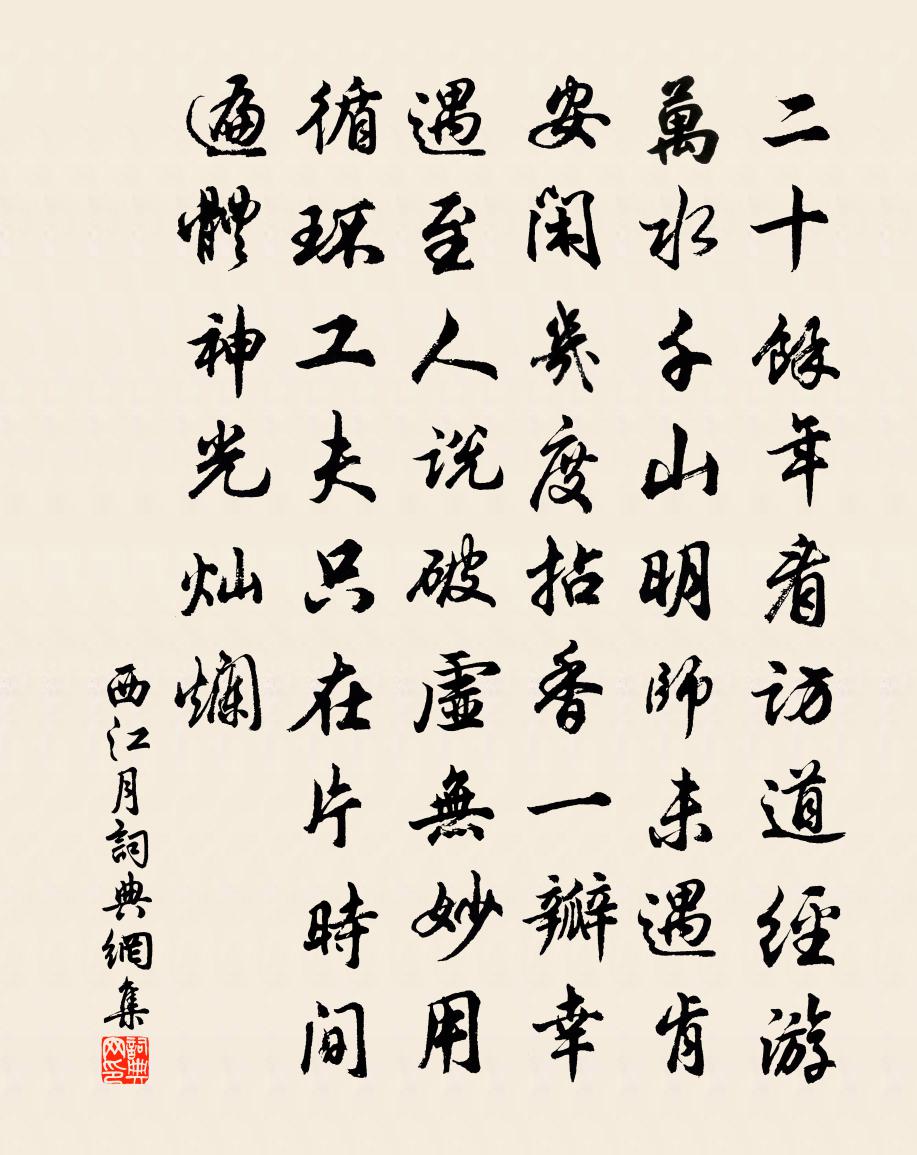 二十餘年看訪道經游
萬水千山明師未遇肯
安閑幾度拈香一瓣幸
遇至人說破虛無妙用
循環工夫只在片時間
遍體神光灿爛
西江月詞典網集
詞典网印